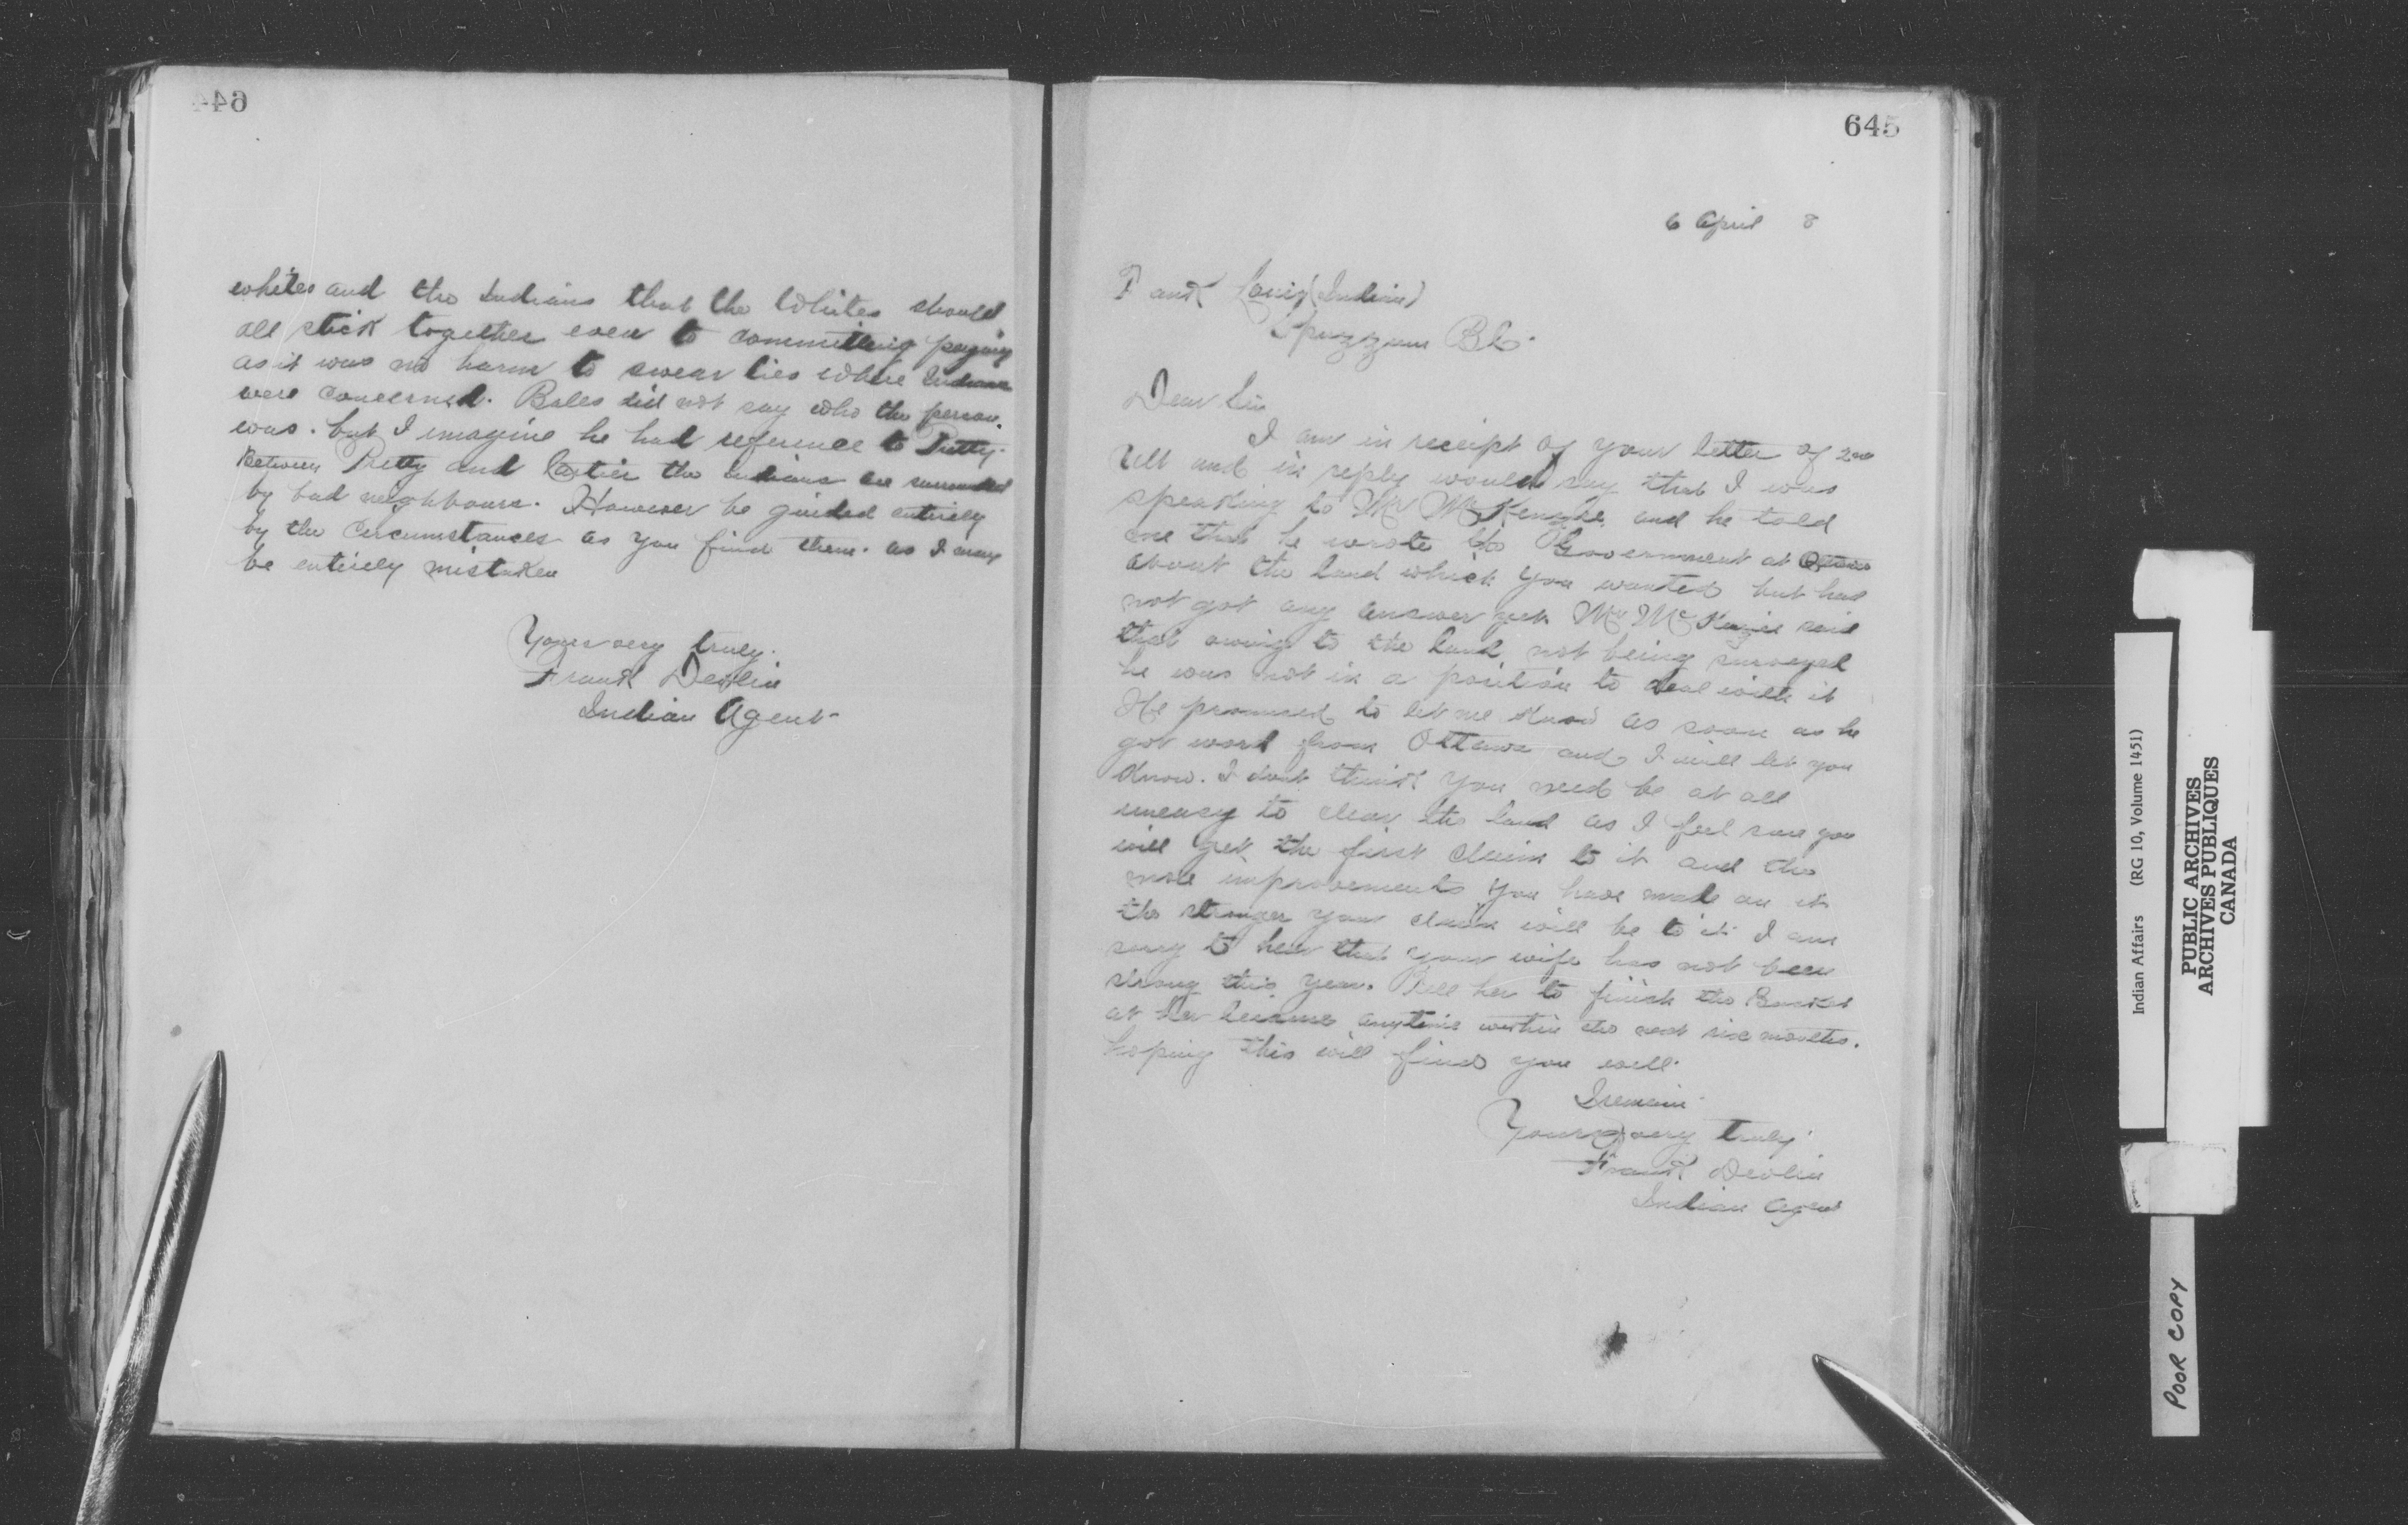 644
whites and the Indians that the Whites should
all stick together even to committing perjury
as it was no harm to swear lies where Indians
were concerned. Bales did not say who the person
was. but I imagine he had reference to Pretty.
Between Pretty and Cartier the Indians are surrounded
by bad neighbours. However be guided entirely
by the circumstances as you find them. as I may
be entirely mistaken
Yours very truly.
Frank Devlin
Indian Agent
645
6 April 8
Frank Louis (Indian)
Spuzzum BC.
Dear Sir
I am in receipt of your letter of 2nd
Ult and in reply would say that I was
speaking to Mr McKenzie and he told
me that he wrote the Government at Ottawa
about the land which you wanted but had
not got any answer yet. Mr McKenzie said
that owing to the land not being surveyed
he was not in a position to deal with it
He promised to let me know as soon as he
got word from Ottawa and I will let you
know. I dont think you need be at all
uneasy to clear the land as I feel sure you
will get the first claim to it and the
more improvements you have made on it
the stronger your claim will be to it. I am
sorry to hear that your wife has not been
strong this year. Tell her to finish the Basket
at her leisure anytime within the next six months.
hoping this will find you well.
I remain
Yours very truly
Frank Devlin
Indian Agent
Indian Affairs (RG 10, Volume 1451)
PUBLIC ARCHIVES
ARCHIVES PUBLIQUES
CANADA
POOR COPY